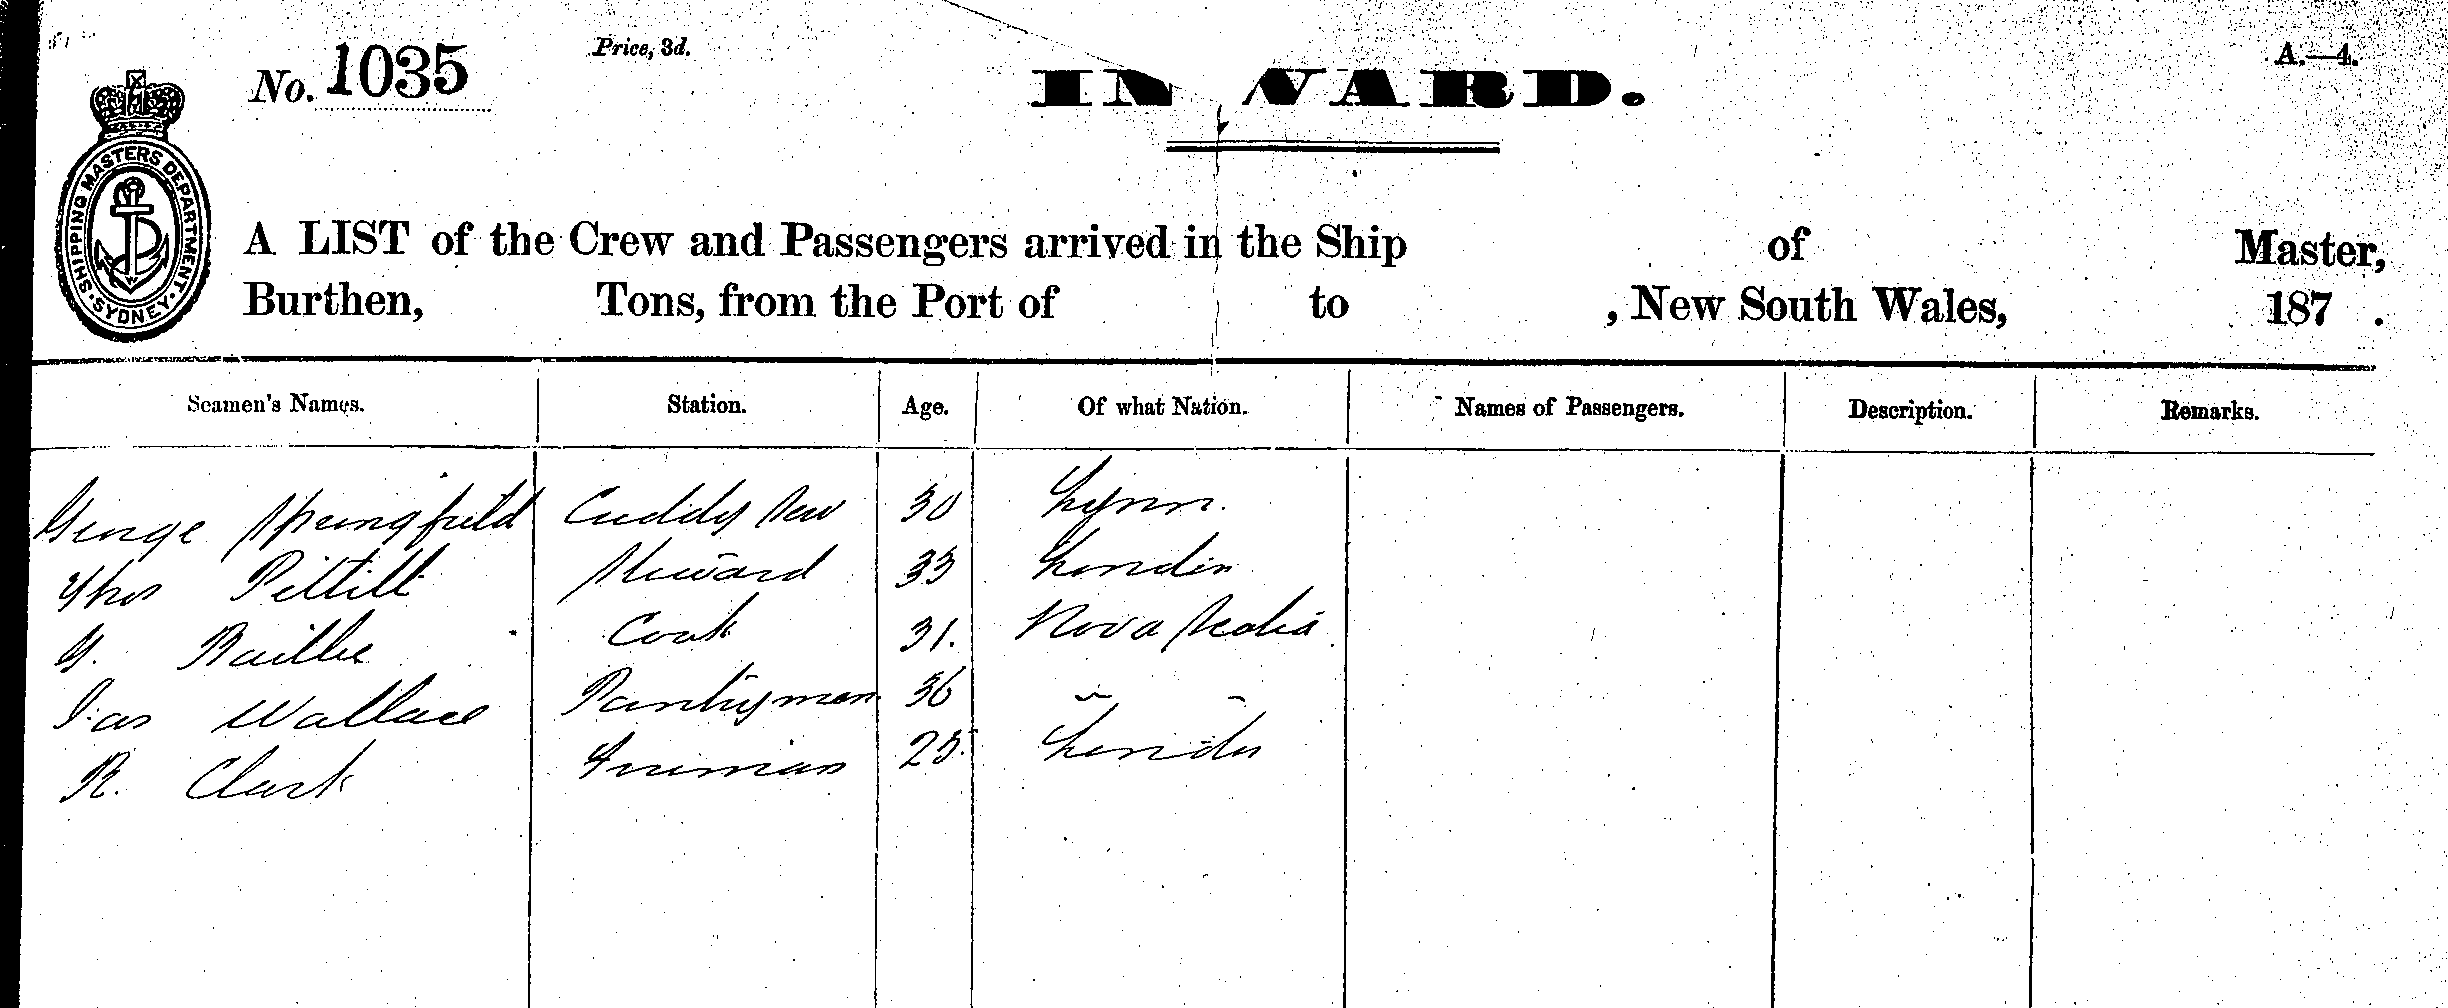 No. 1035
Price, 3d.
INWARD.
A.—4.
SHIPPING MASTERS DEPARTMENT. SYDNEY.
A LIST of the Crew and Passengers arrived in the Ship of Master,
Burthen, Tons, from the Port of to , New South Wales, 187 .
Seamen's Names. Station. Age. Of what Nation. Names of Passengers. Description. Remarks.
George Springfield Cuddy 30 Lynn.
Thos Pettitt Steward 33 London
Baillie Cook 31. Nova Scotia
Jas Wallace Pantryman 36 " "
R. Clark 25. London